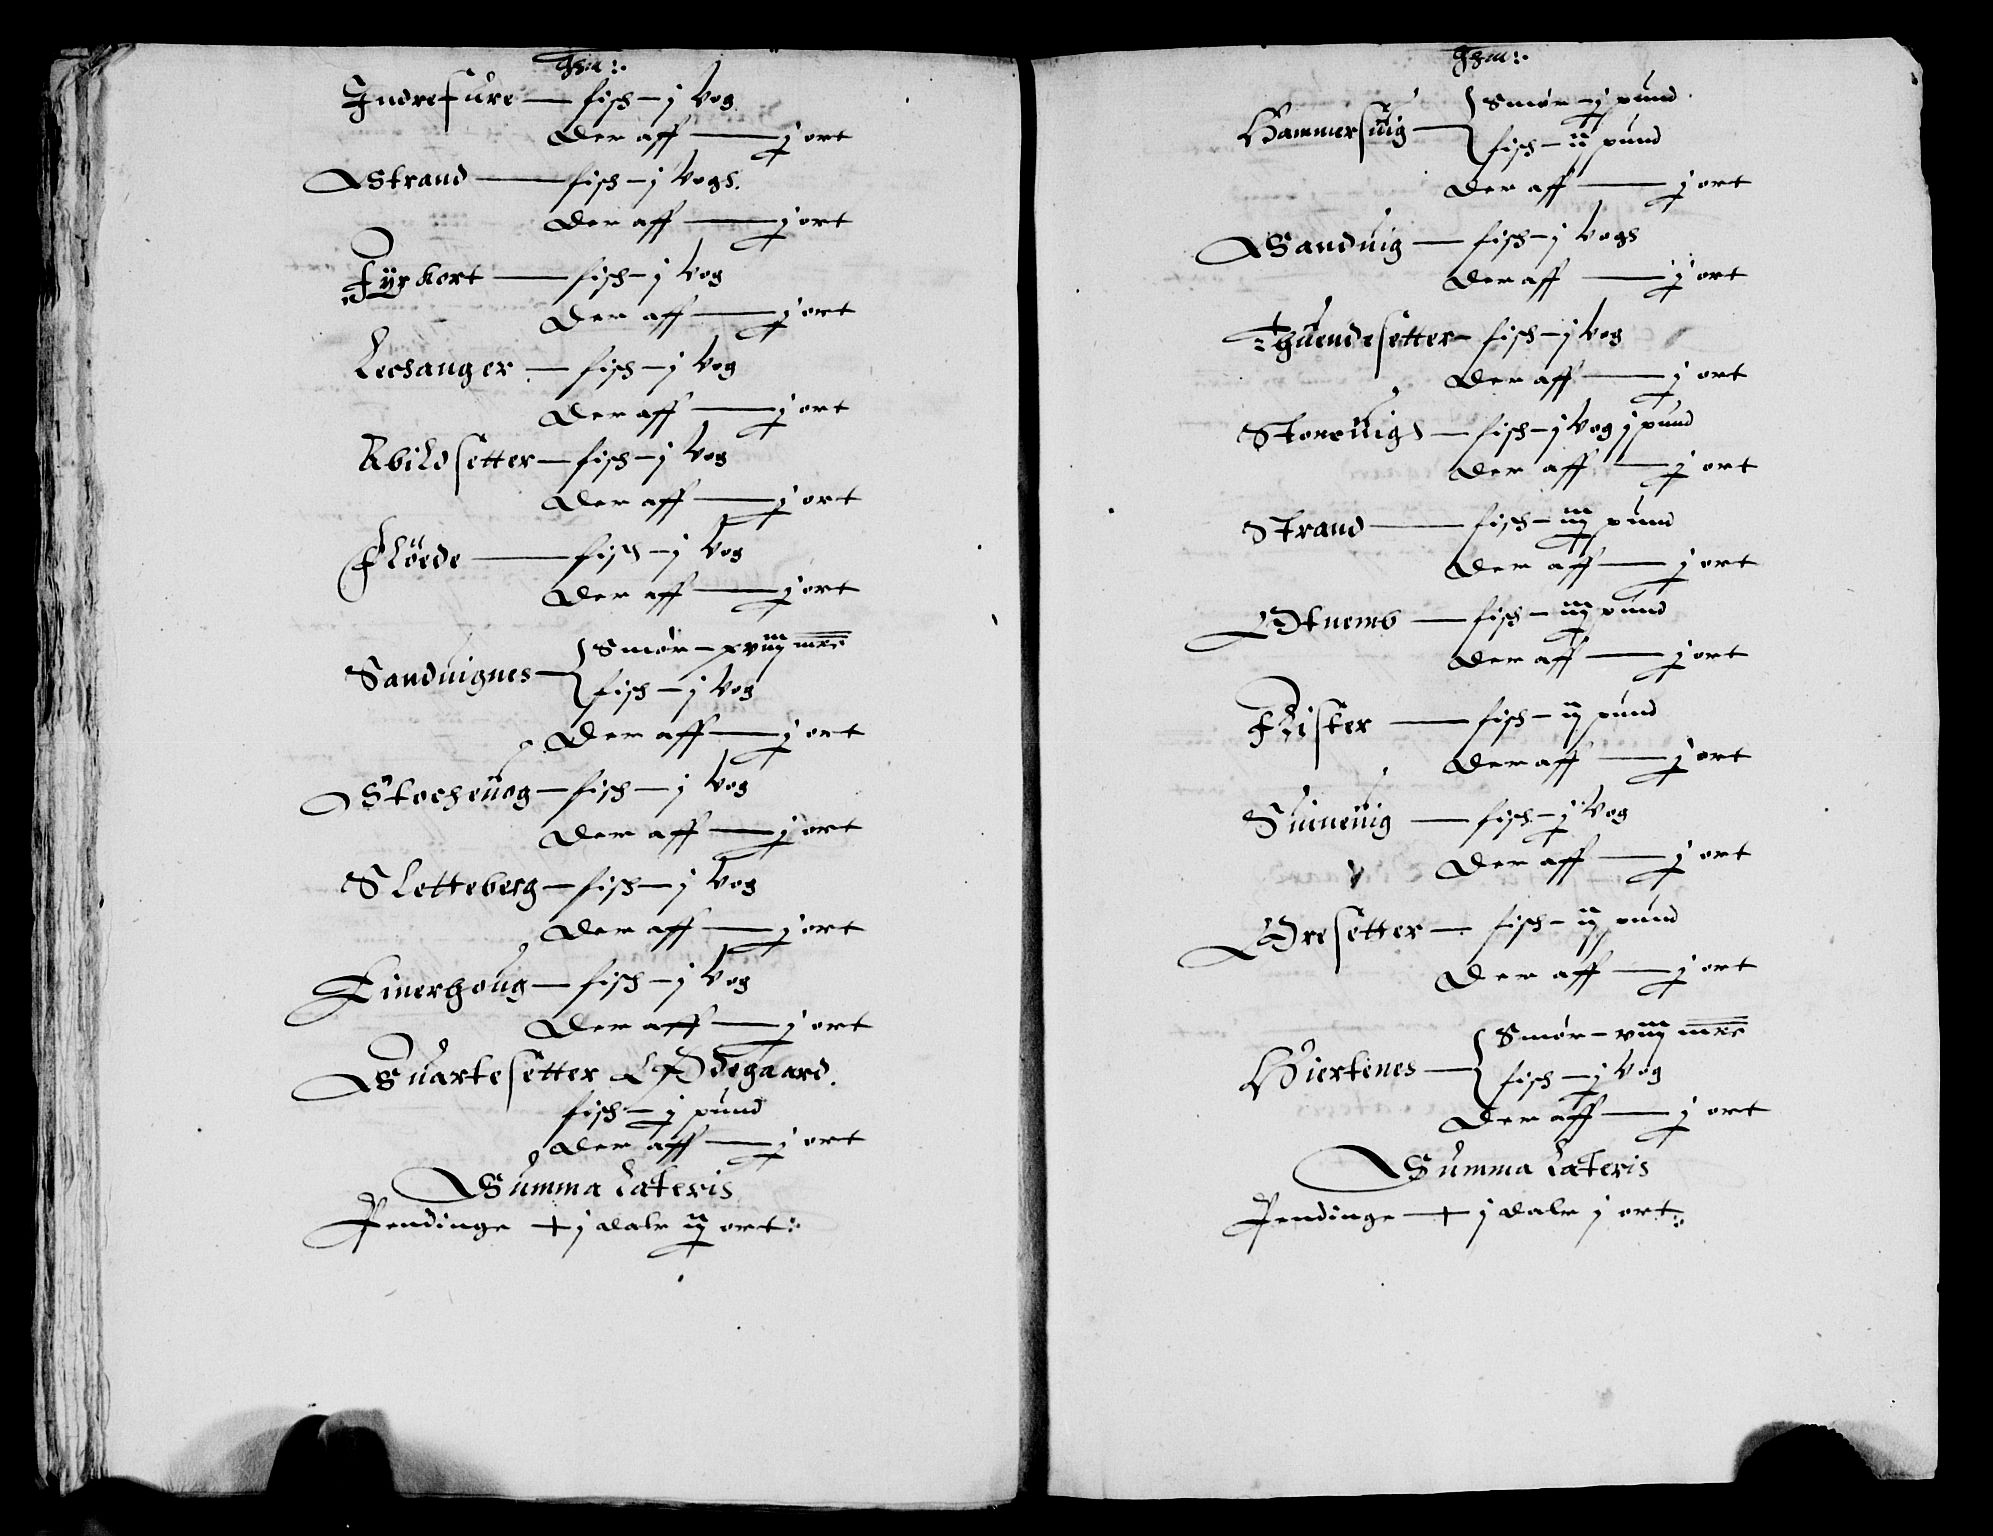 Indresure — fisch — j Vog
Der aff — j ort
Strand — fisch — j Vogh
Der aff — j ort
Fyrkort — fisch — j Vog
Der aff — j ort
Lechanger — fisch — j Vog
Der aff — j ort
Abildsetter — fisch — j Vog
Der aff — j ort
Flöede — fisch — j Vog
Der aff — j ort
Sanduignes — Smør — xviiij mrc
fisch — j Vog
Der aff — j ort
Stocheuog — fisch — j Vog
Der aff — j ort
Sletteberg — fisch — j Vog
Der aff — j ort
Einerhoug — fisch — j Vog
Der aff — j ort
Suartesetter Ødegaard
fisch — j pund
Der aff — j ort
Summa Lateris
Pendinge — j dalr iij ort
Hammersuig — Smør — j pund
fisch — ij pund
Der aff — j ort
Sanduig — fisch — j Vogh
Der aff — j ort
Thuendesetter — fisch — j Vog
Der aff — j ort
Storeuigh — fisch — j Vog j pund
Der aff — j ort
Strand — fisch — iiij pund
Der aff — j ort
Otnemb — fisch — iiij pund
Der aff — j ort
Rister — fisch — ij pund
Der aff — j ort
Suineuig — fisch — j Vog
Der aff — j ort
Øresetter — fisch — ij pund
Der aff — j ort
Hiertenes — Smør — viiij mrc
fisch — j Vog
Der aff — j ort
Summa Lateris
Pendinge — j dalr j ort